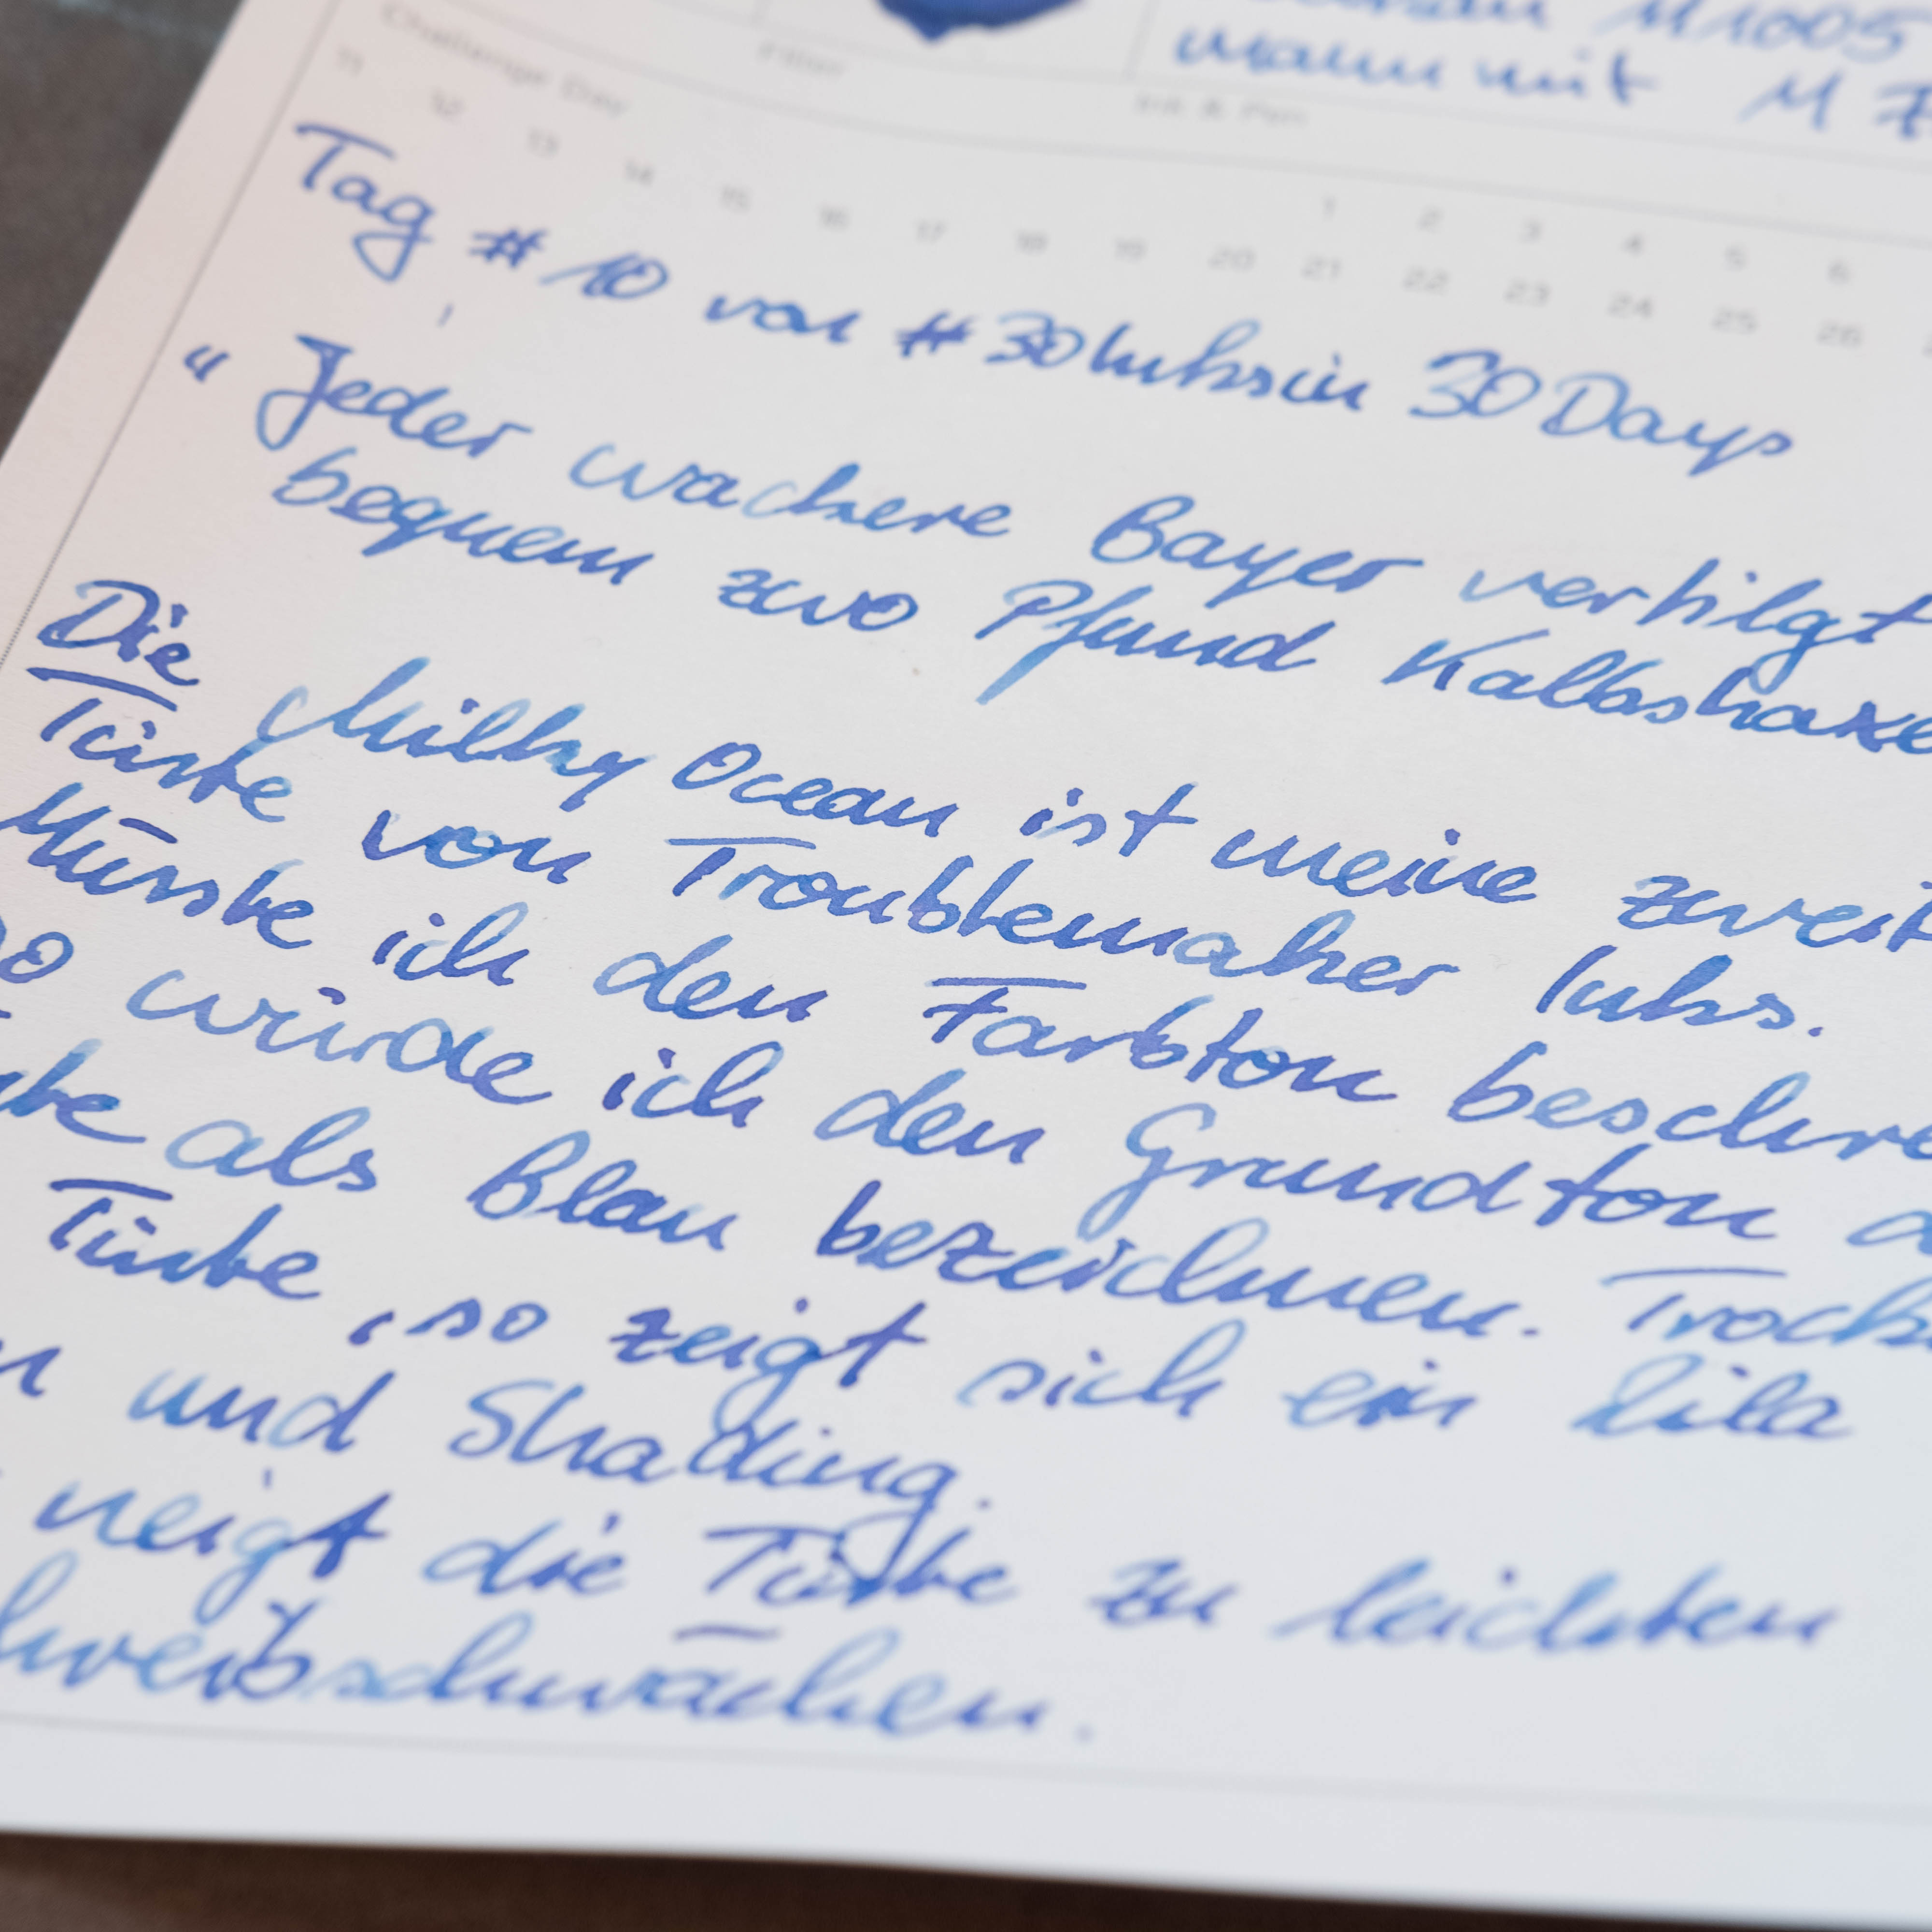 M1005
mit M
Challenge Day Filler Ink & Pen
1 2 3 4 5 6
11 12 13 14 15 16 17 18 19 20 21 22 23 24 25 26
Tag #10 von #30Inksin30Days
"Jeder wackere Bayer vertilgt
bequem zwo Pfund Kalbshaxe
Die Milky Ocean ist meine
Tinte von Troublemaker Inks.
Müsste ich den Farbton
würde ich den Grundton
als Blau bezeichnen.
Tinte, so zeigt sich ein lila
und Shading.
neigt die Tinte zu leichten